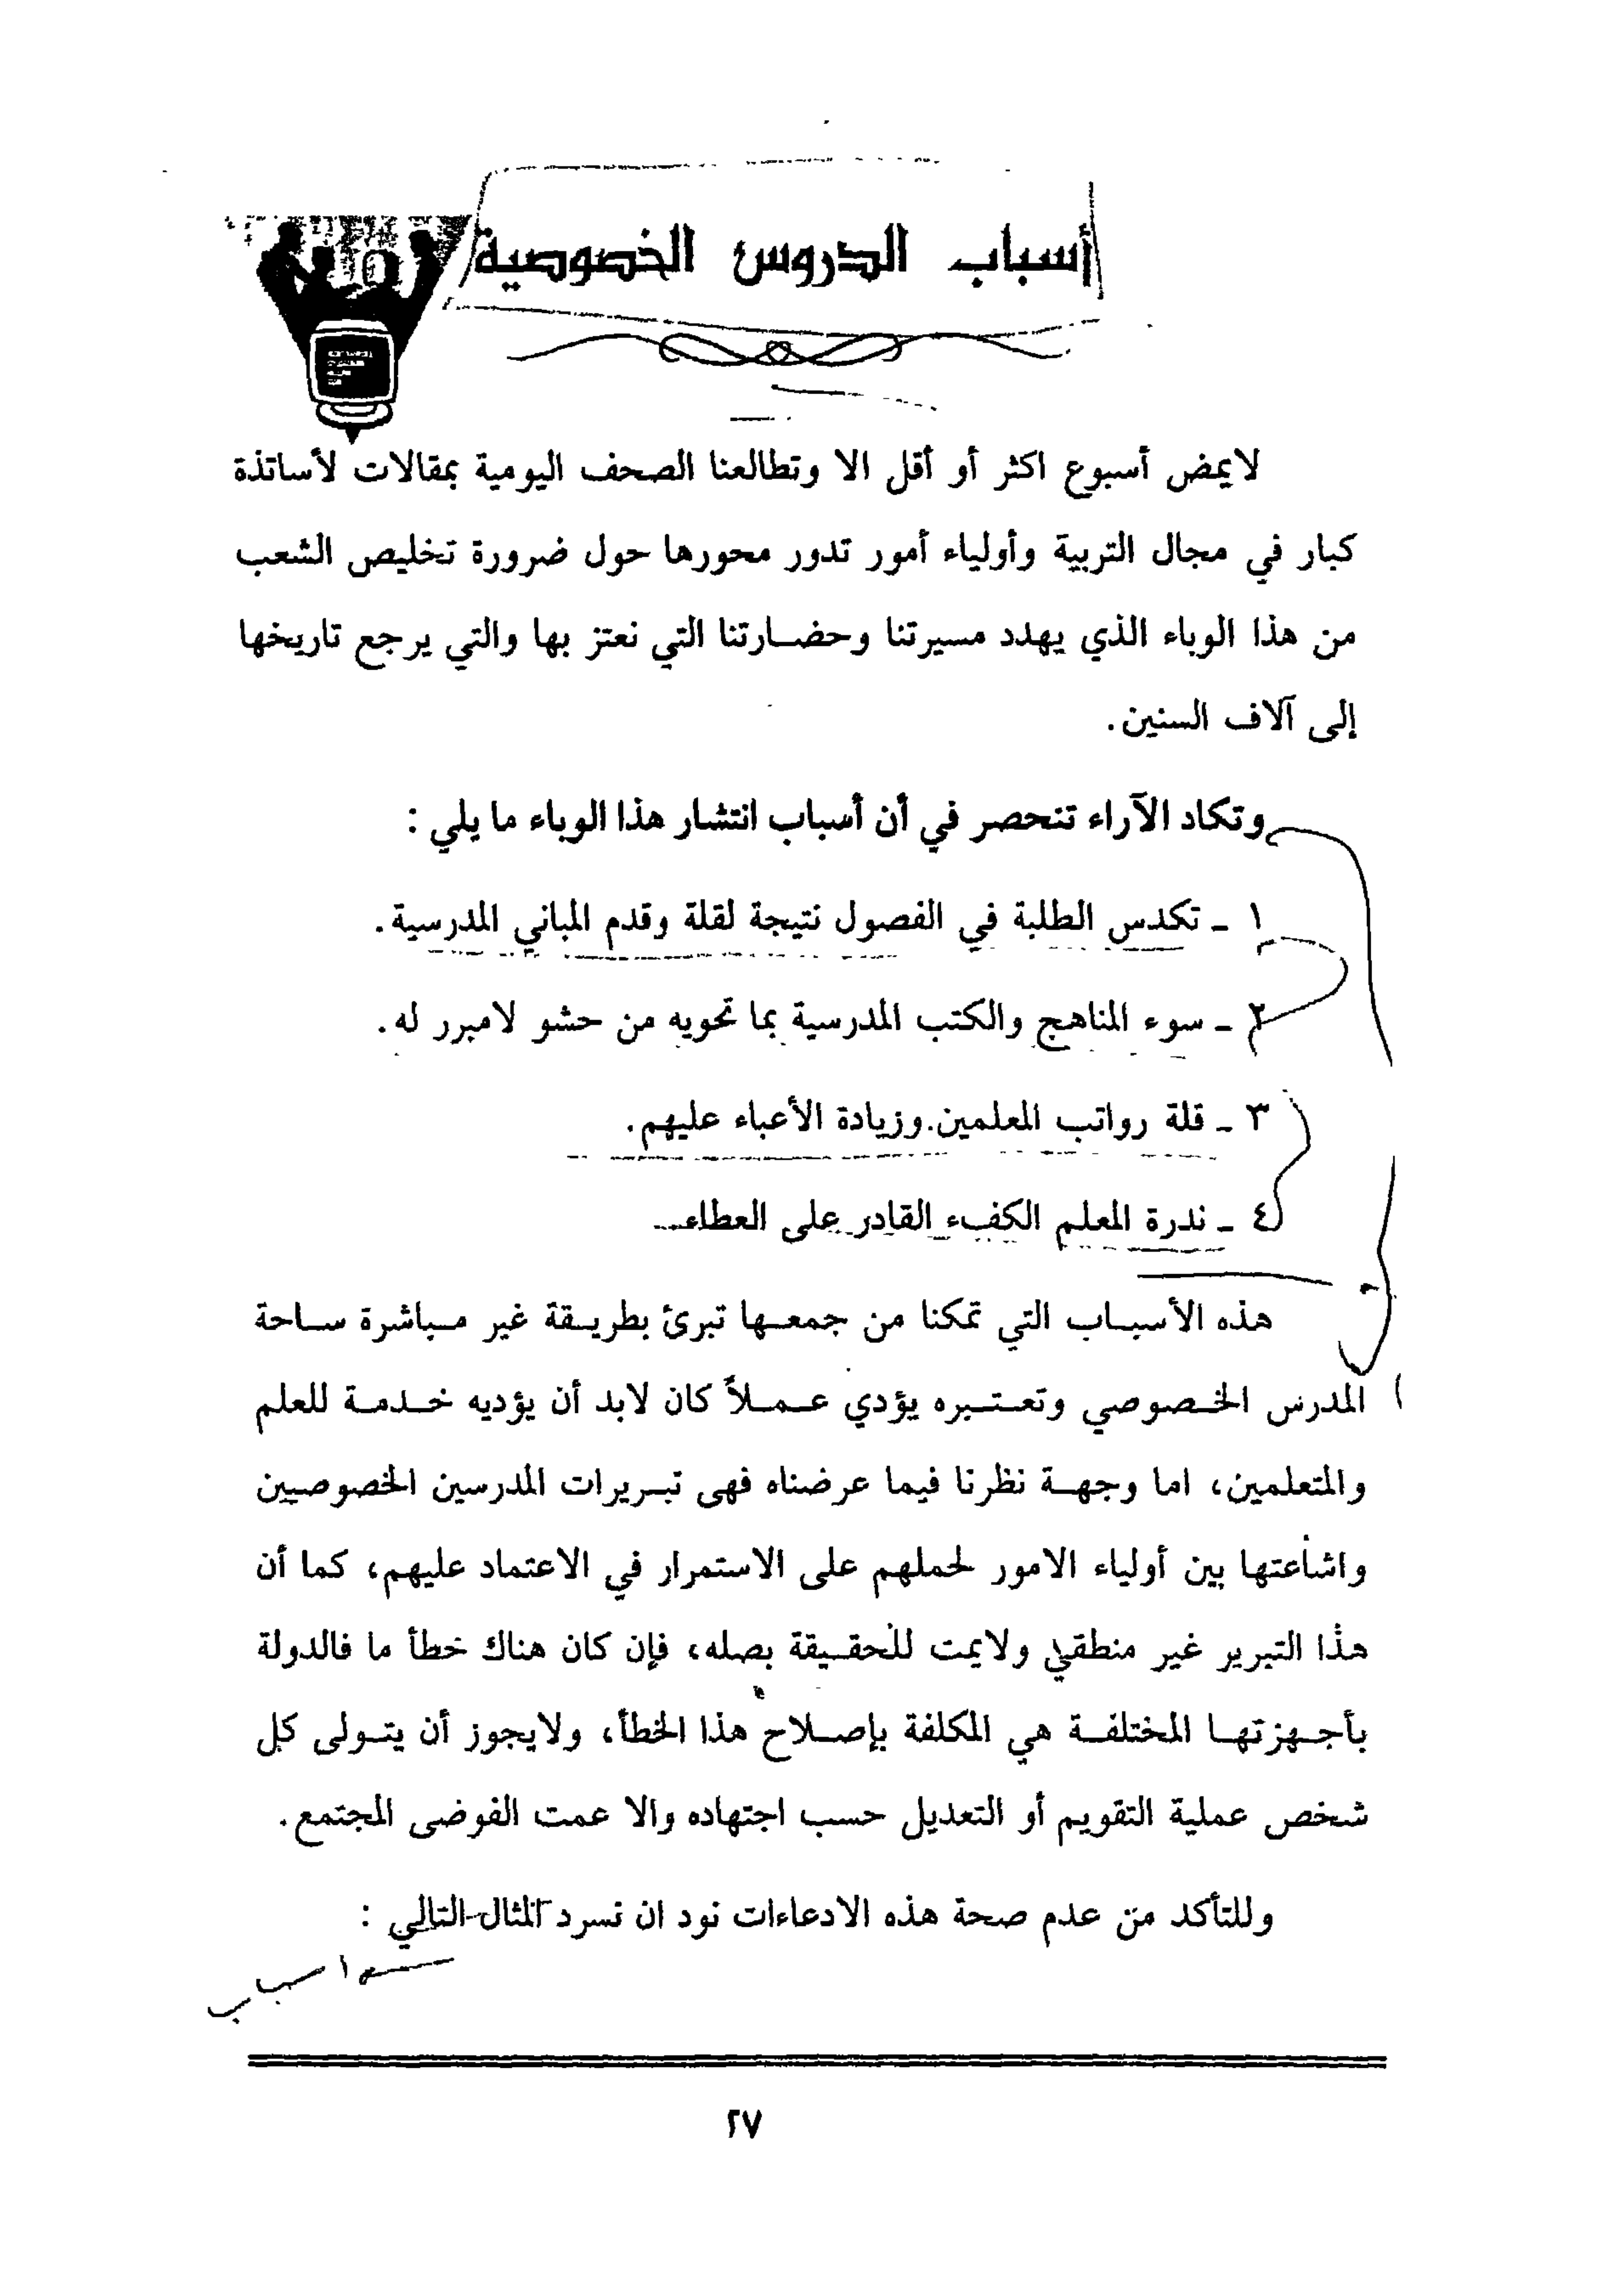 أسباب الدروس الخصوصية
لايمض أسبوع اكثر أو أقل الا وتطالعنا الصحف اليومية بمقالات لأساتذة
كبار في مجال التربية وأولياء أمور تدور محورها حول ضرورة تخليص الشعب
من هذا الوباء الذي يهدد مسيرتنا وحضارتنا التي نعتز بها والتي يرجع تاريخها
إلى آلاف السنين.
وتكاد الآراء تنحصر في أن أسباب انتشار هذا الوباء ما يلي :
١ ـ تكدس الطلبة في الفصول نتيجة لقلة وقدم المباني المدرسية.
٢ ـ سوء المناهج والكتب المدرسية بما تحويه من حشو لامبرر له.
٣ ـ قلة رواتب المعلمين.وزيادة الأعباء عليهم.
٤ ـ ندرة المعلم الكفء القادر على العطاء
هذه الأسباب التي تمكنا من جمعها تبرئ بطريقة غير مباشرة ساحة
المدرس الخصوصي وتعتبره يؤدي عملاً كان لابد أن يؤديه خدمة للعلم
والمتعلمين، اما وجهة نظرنا فيما عرضناه فهى تبريرات المدرسين الخصوصيين
واشاعتها بين أولياء الامور لحملهم على الاستمرار في الاعتماد عليهم، كما أن
هذا التبرير غير منطقي ولايمت للحقيقة بصله، فإن كان هناك خطأ ما فالدولة
بأجهزتها المختلفة هي المكلفة بإصلاح هذا الخطأ، ولايجوز أن يتولى كل
شخص عملية التقويم أو التعديل حسب اجتهاده والا عمت الفوضى المجتمع.
وللتأكد من عدم صحة هذه الادعاءات نود ان نسرد المثال التالي :
٢٧